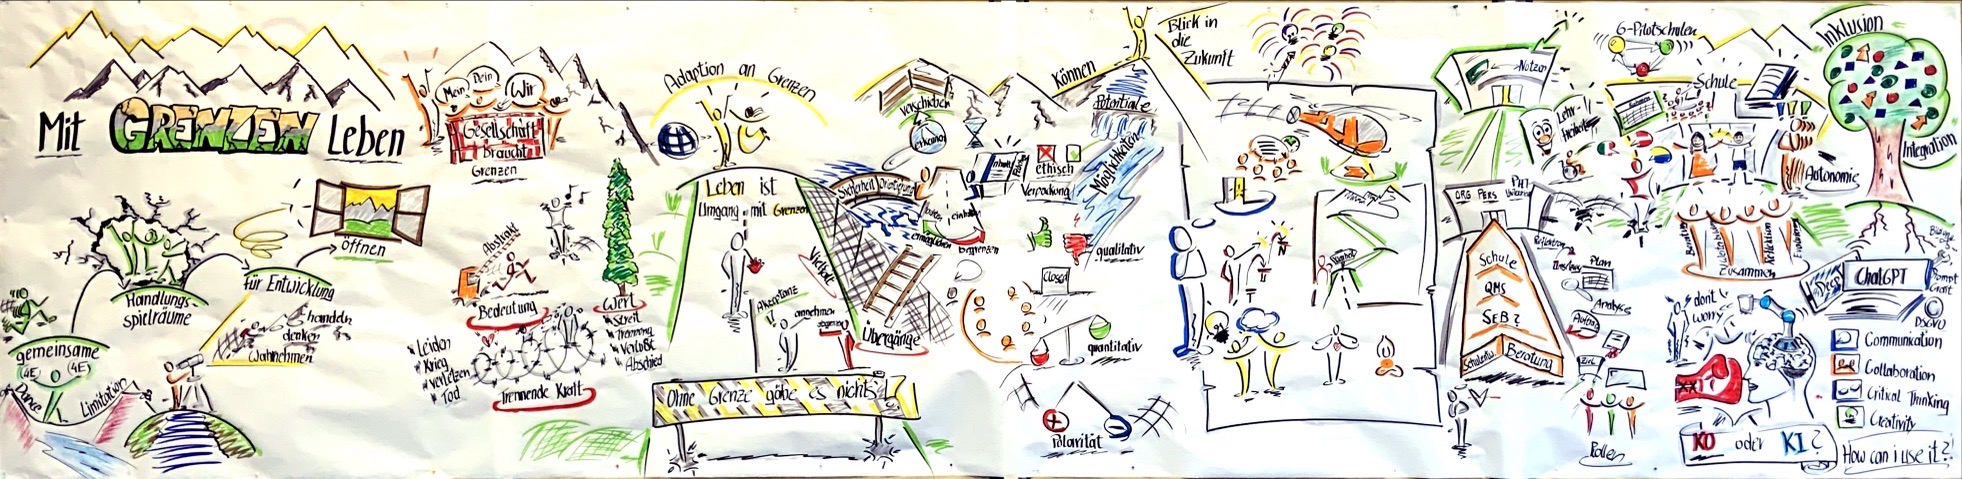 Mit GRENZEN Leben
Mein
Dein
Wir
Gesellschaft
braucht
Grenzen
Handlungs-
spielräume
für Entwicklung
öffnen
handeln
denken
Wahrnehmen
gemeinsame
(4E) (4E)
Limitation
Abstrakt
Bedeutung
* Leiden
* Krieg
* verletzen
* Tod
Trennende Kraft
Wert
* Streit
* Trennung
* Verluste
* Abschied
Adaption an Grenzen
Leben ist
Umgang mit Grenzen
Vielfalt
Akzeptanz
annehmen
Ohne Grenze gäbe es nichts!
verschieben
erkannt
Sicherheit
Orientierung
ermöglichen
begrenzen
Übergänge
Können
Potentiale
Möglichkeiten
ethisch
Verpackung
qualitativ
Closed
quantitativ
Polarität
Blick in
die
Zukunft
Nutzen
ORG PERS
Schule
QMS
SEB?
Schulentw.
Beratung
Lehr
Freiheit
Plan
Analyse
Auftrag
Ziel
Rollen
6-Pilotschulen
Schule
Autonomie
Zusammen
Beratung
Reflektion
Inklusion
Integration
don't
worry
Deepl
ChatGPT
Prompt
Craft
DSGVO
Communication
Collaboration
Critical Thinking
Creativity
KO oder KI?
How can i use it?!